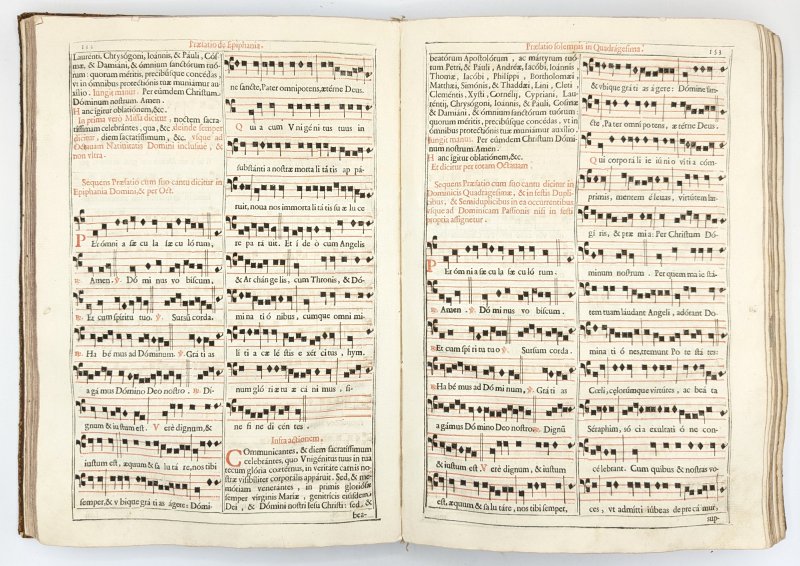 Præfatio de Epiphania.
Laurénti, Chrysógoni, Ioánnis, & Páuli, Cos-
mæ, & Damiáni, & ómnium sanctórum tuó-
rum: quorum méritis, precibúsque concédas,
vt in ómnibus protectiónis tuæ muniámur au-
xílio. Iungit manus. Per eúmdem Christum
Dóminum nostrum. Amen.
Hanc ígitur oblatiónem, &c.
In prima verò Missa dicitur, noctem sacra-
tíssimam celebrántes, qua, &c. deinde semper
dicitur, diem sacratíssimum, &c. vsque ad
Octauam Natiuitatis Domini inclusiuè, &
non vltra.
Sequens Præfatio cum suo cantu dicitur in
Epiphania Domini, & per Oct.
Per ómni a sæ cu la sæ cu lórum,
Amen. ℣. Dó mi nus vo bíscum.
℟. Et cum spíritu tuo. ℣. Sursú corda.
℟. Ha bé mus ad Dóminum. ℣. Grá ti as
a gámus Dómino Deo nostro. ℟. Di-
gnum & iustum est. Verè dignum, &
iustum est, æquum & sa lu tá re, nos tibi
semper, & v bíque grá ti as ágere: Dómi-
ne sancte, Pater omnípotens, ætérne Deus.
Qui a cum Vnigéni tus tuus in
substánti a nostræ morta li tá tis ap pá-
ruit, noua nos immorta li tá tis su æ lu ce
re pa rá uit. Et í de o cum Angelis
& Archánge lis, cum Thronis, & Dó-
mina ti ó nibus, cumque omni mi-
lí ti a cæ lé stis e xér citus, hym.
num gló ri æ tu æ cá ni mus, si-
ne fi ne di cén tes.
Infra actionem.
Communicántes, & diem sacratíssimum
celebrántes, quo Vnigénitus tuus in tua
tecum glória coætérnus, in veritáte carnis no-
stræ visibíliter corporális appáruit. Sed, & me-
móriam venerántes, in primis gloriósæ
semper vírginis Maríæ, genitrícis eiúsdem
Dei, & Dómini nostri Iesu Christi: sed, &
bea-
Præfatio solemnis in Quadragesima.
153
beatórum Apostolórum, ac mártyrum tuó-
rum Petri, & Pauli, Andréæ, Iacóbi, Ioánnis
Thomæ, Iacóbi, Philíppi, Bartholomǽi
Matthǽi, Simónis, & Thaddǽi, Lini, Cleti,
Cleméntis, Xysti, Cornélij, Cypriáni, Lau-
réntij, Chrysógoni, Ioánnis, & Pauli, Cosmæ
& Damiáni, & ómnium sanctórum tuórum:
quorum méritis, precibúsque concédas, vt in
ómnibus protectiónis tuæ muniámur auxílio.
Iungit manus. Per eúmdem Christum Dómi-
num nostrum. Amen.
Hanc ígitur oblatiónem, &c.
Et dicitur per totam Octauam.
Sequens Præfatio cum suo cantu dicitur in
Dominicis Quadragesimæ, & in festis Dupli-
cibus, & Semiduplicibus in ea occurrentibus
vsque ad Dominicam Passionis nisi in festis
propria assignetur.
Per óm ni a sæ cu la sæ cu ló rum.
Amen. ℣. Dó mi nus vo bíscum.
℟. Et cum spí ri tu tu o ℣. Sursum corda.
℟. Ha bé mus ad Dó mi num, ℣. Grá ti as
a gámus Dó mino Deo nostro. ℟. Dignũ
& iustum est. Verè dignum, & iustum
est, æquum & sa lu táre, nos tibi semper,
& vbíque grá ti as á gere: Dómine san-
cte, Pa ter omní po tens, æ térne Deus.
Qui corpo rá li ie iú nio ví ti a cóm-
primis, mentem é leuas, virtútem lar-
gí ris, & præ mi a: Per Christum Dó-
minum nostrum. Per quem ma ie stá-
tem tuam láudant Angeli, adórant Do-
mina ti ó nes, tremunt Po te stá tes:
Cœli, cælorúmque virtútes, ac beá ta
Séraphim, só cia exultati ó ne con-
célebrant. Cum quibus & nostras vo-
ces, vt admítti iúbeas de pre cá mur,
sup-